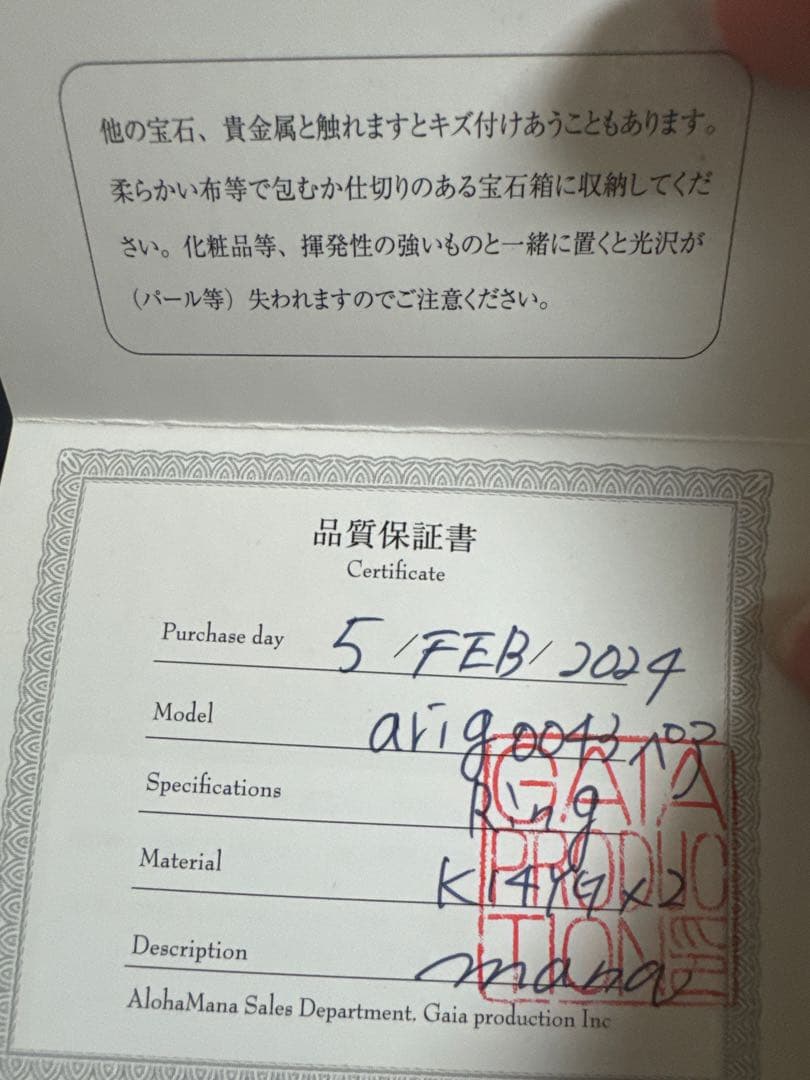 他の宝石、貴金属と触れますとキズ付けあうこともあります。
柔らかい布等で包むか仕切りのある宝石箱に収納してくだ
さい。化粧品等、揮発性の強いものと一緒に置くと光沢が
（パール等）失われますのでご注意ください。
品質保証書
Certificate
Purchase day 5/FEB/2024
Model arig0043ペア
Specifications Ring
Material K14YGx2
Description mana
GAIA
PRODUC
TION
AlohaMana Sales Department. Gaia production Inc